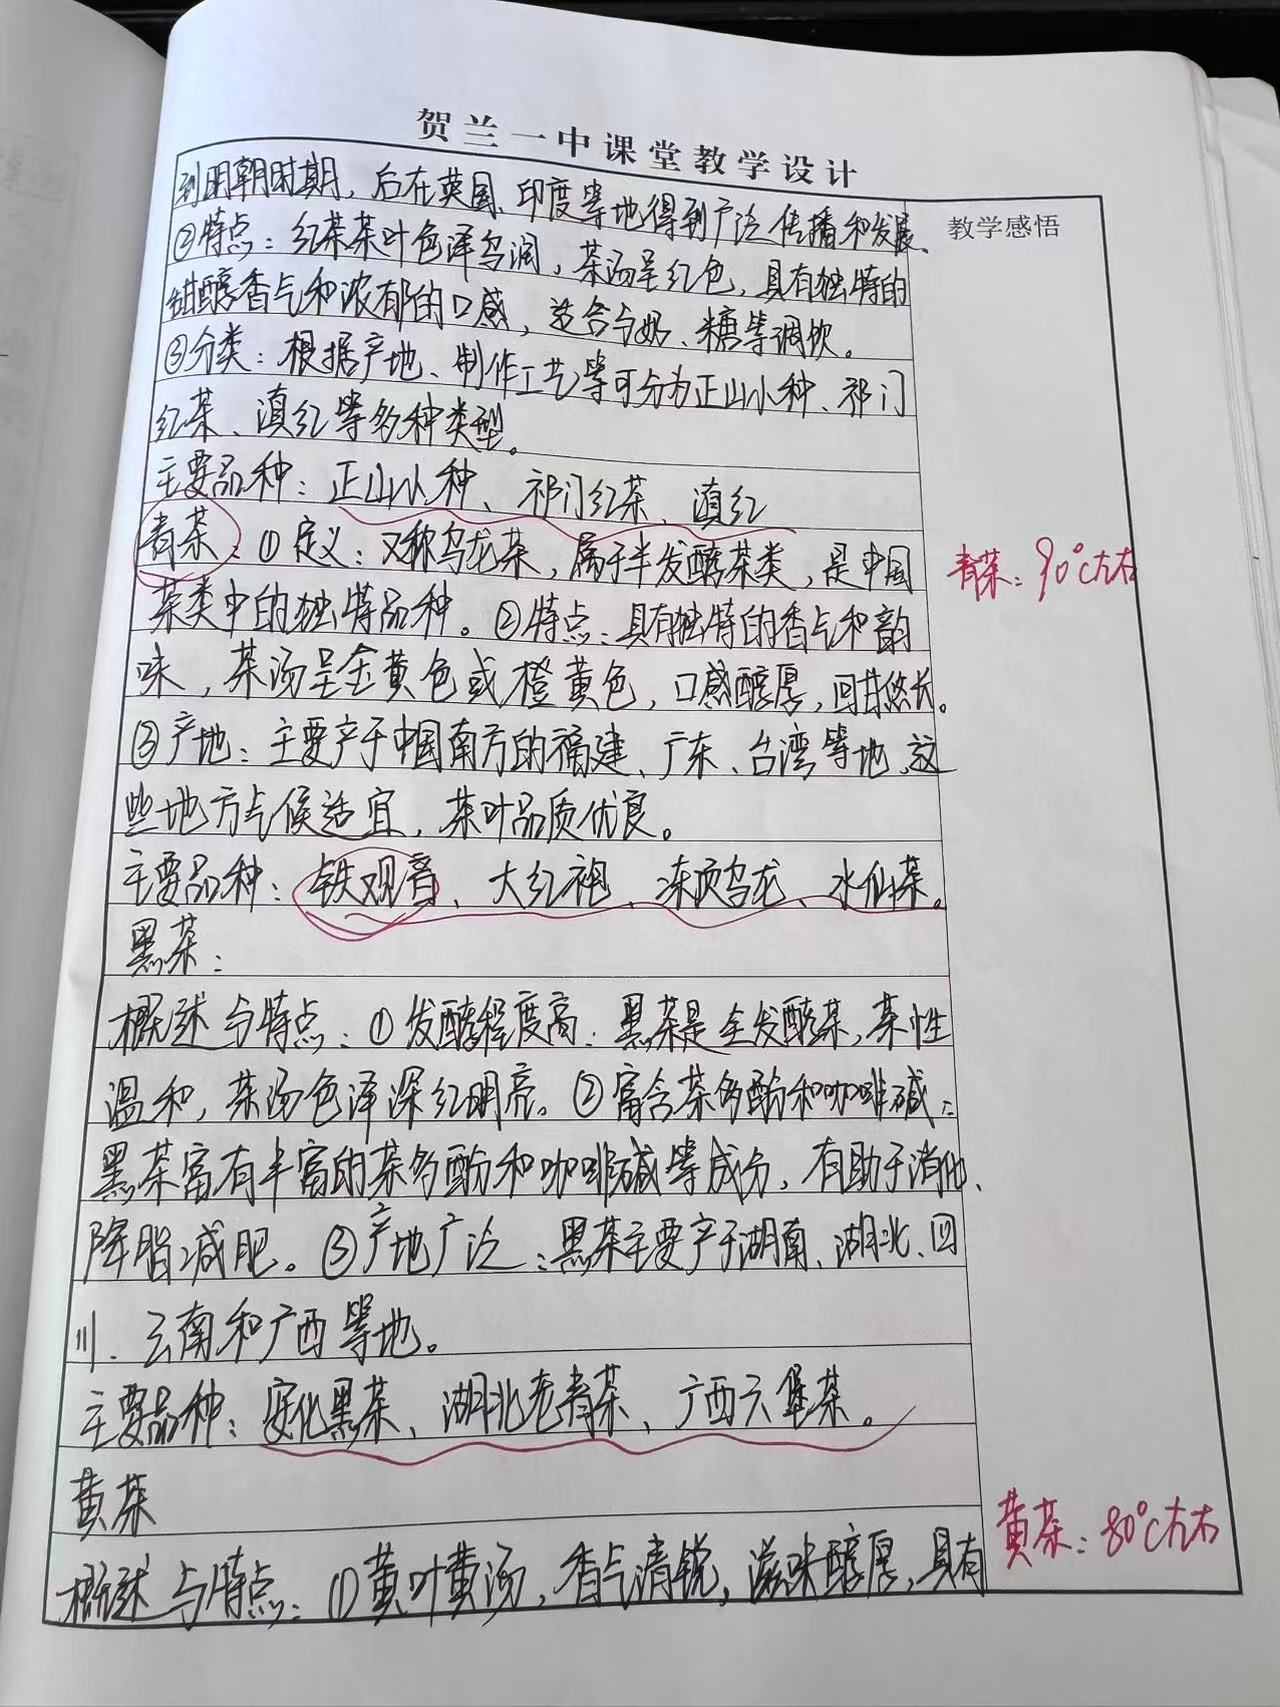 贺兰一中课堂教学设计
教学感悟
到明朝时期，后在英国、印度等地得到广泛传播和发展、
②特点：红茶茶叶色泽乌润，茶汤呈红色，具有独特的
甜醇香气和浓郁的口感，适合与奶、糖等调饮。
③分类：根据产地、制作工艺等可分为正山小种、祁门
红茶、滇红等多种类型。
主要品种：正山小种、祁门红茶、滇红
青茶：①定义：又称乌龙茶，属于半发酵茶类，是中国
青茶：90℃左右
茶类中的独特品种。②特点：具有独特的香气和韵
味，茶汤呈金黄色或橙黄色，口感醇厚，回甘悠长。
③产地：主要产于中国南方的福建、广东、台湾等地，这
些地方气候适宜，茶叶品质优良。
主要品种：铁观音、大红袍、冻顶乌龙、水仙茶。
黑茶：
概述与特点：①发酵程度高：黑茶是全发酵茶，茶性
温和，茶汤色泽深红明亮。②富含茶多酚和咖啡碱：
黑茶富有丰富的茶多酚和咖啡碱等成分，有助于消化、
降脂减肥。③产地广泛：黑茶主要产于湖南、湖北、四
川、云南和广西等地。
主要品种：安化黑茶、湖北老青茶、广西六堡茶。
黄茶
概述与特点：①黄叶黄汤，香气清锐，滋味醇厚，具有
黄茶：80℃左右